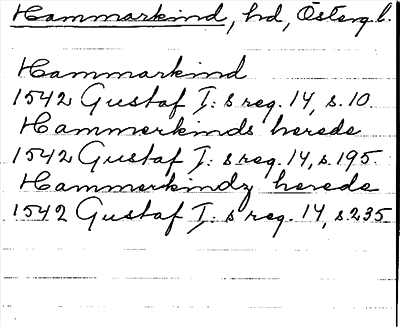 Hammarkind, hd, Österg.l.
Hammarkind
1542 Gustaf I:s reg. 14, s. 10.
Hammerkinds herede
1542 Gustaf I:s reg. 14, s. 195.
Hammerkindz herede
1542 Gustaf I:s reg. 14, s. 235